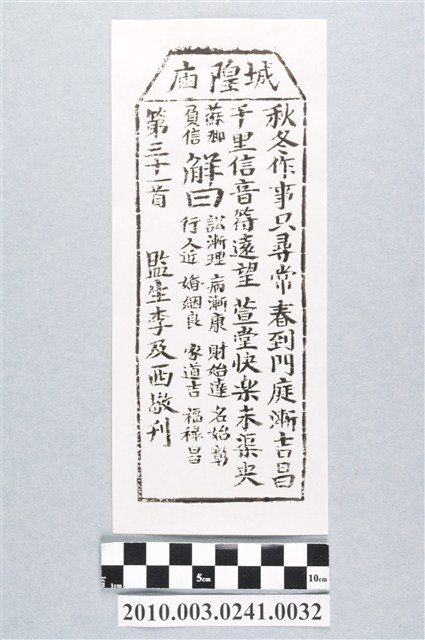 城隍庙
秋冬作事只尋常 春到門庭漸吉昌
千里信音符遠望 萱堂快楽未渠央
蘇卿
負信
解曰
訟漸理 病漸康 財始達 名始彰
行人近 婚姻良 家道吉 福祿昌
第三十一首 監生李及西敬刊
1cm 5cm 10cm
2010.003.0241.0032